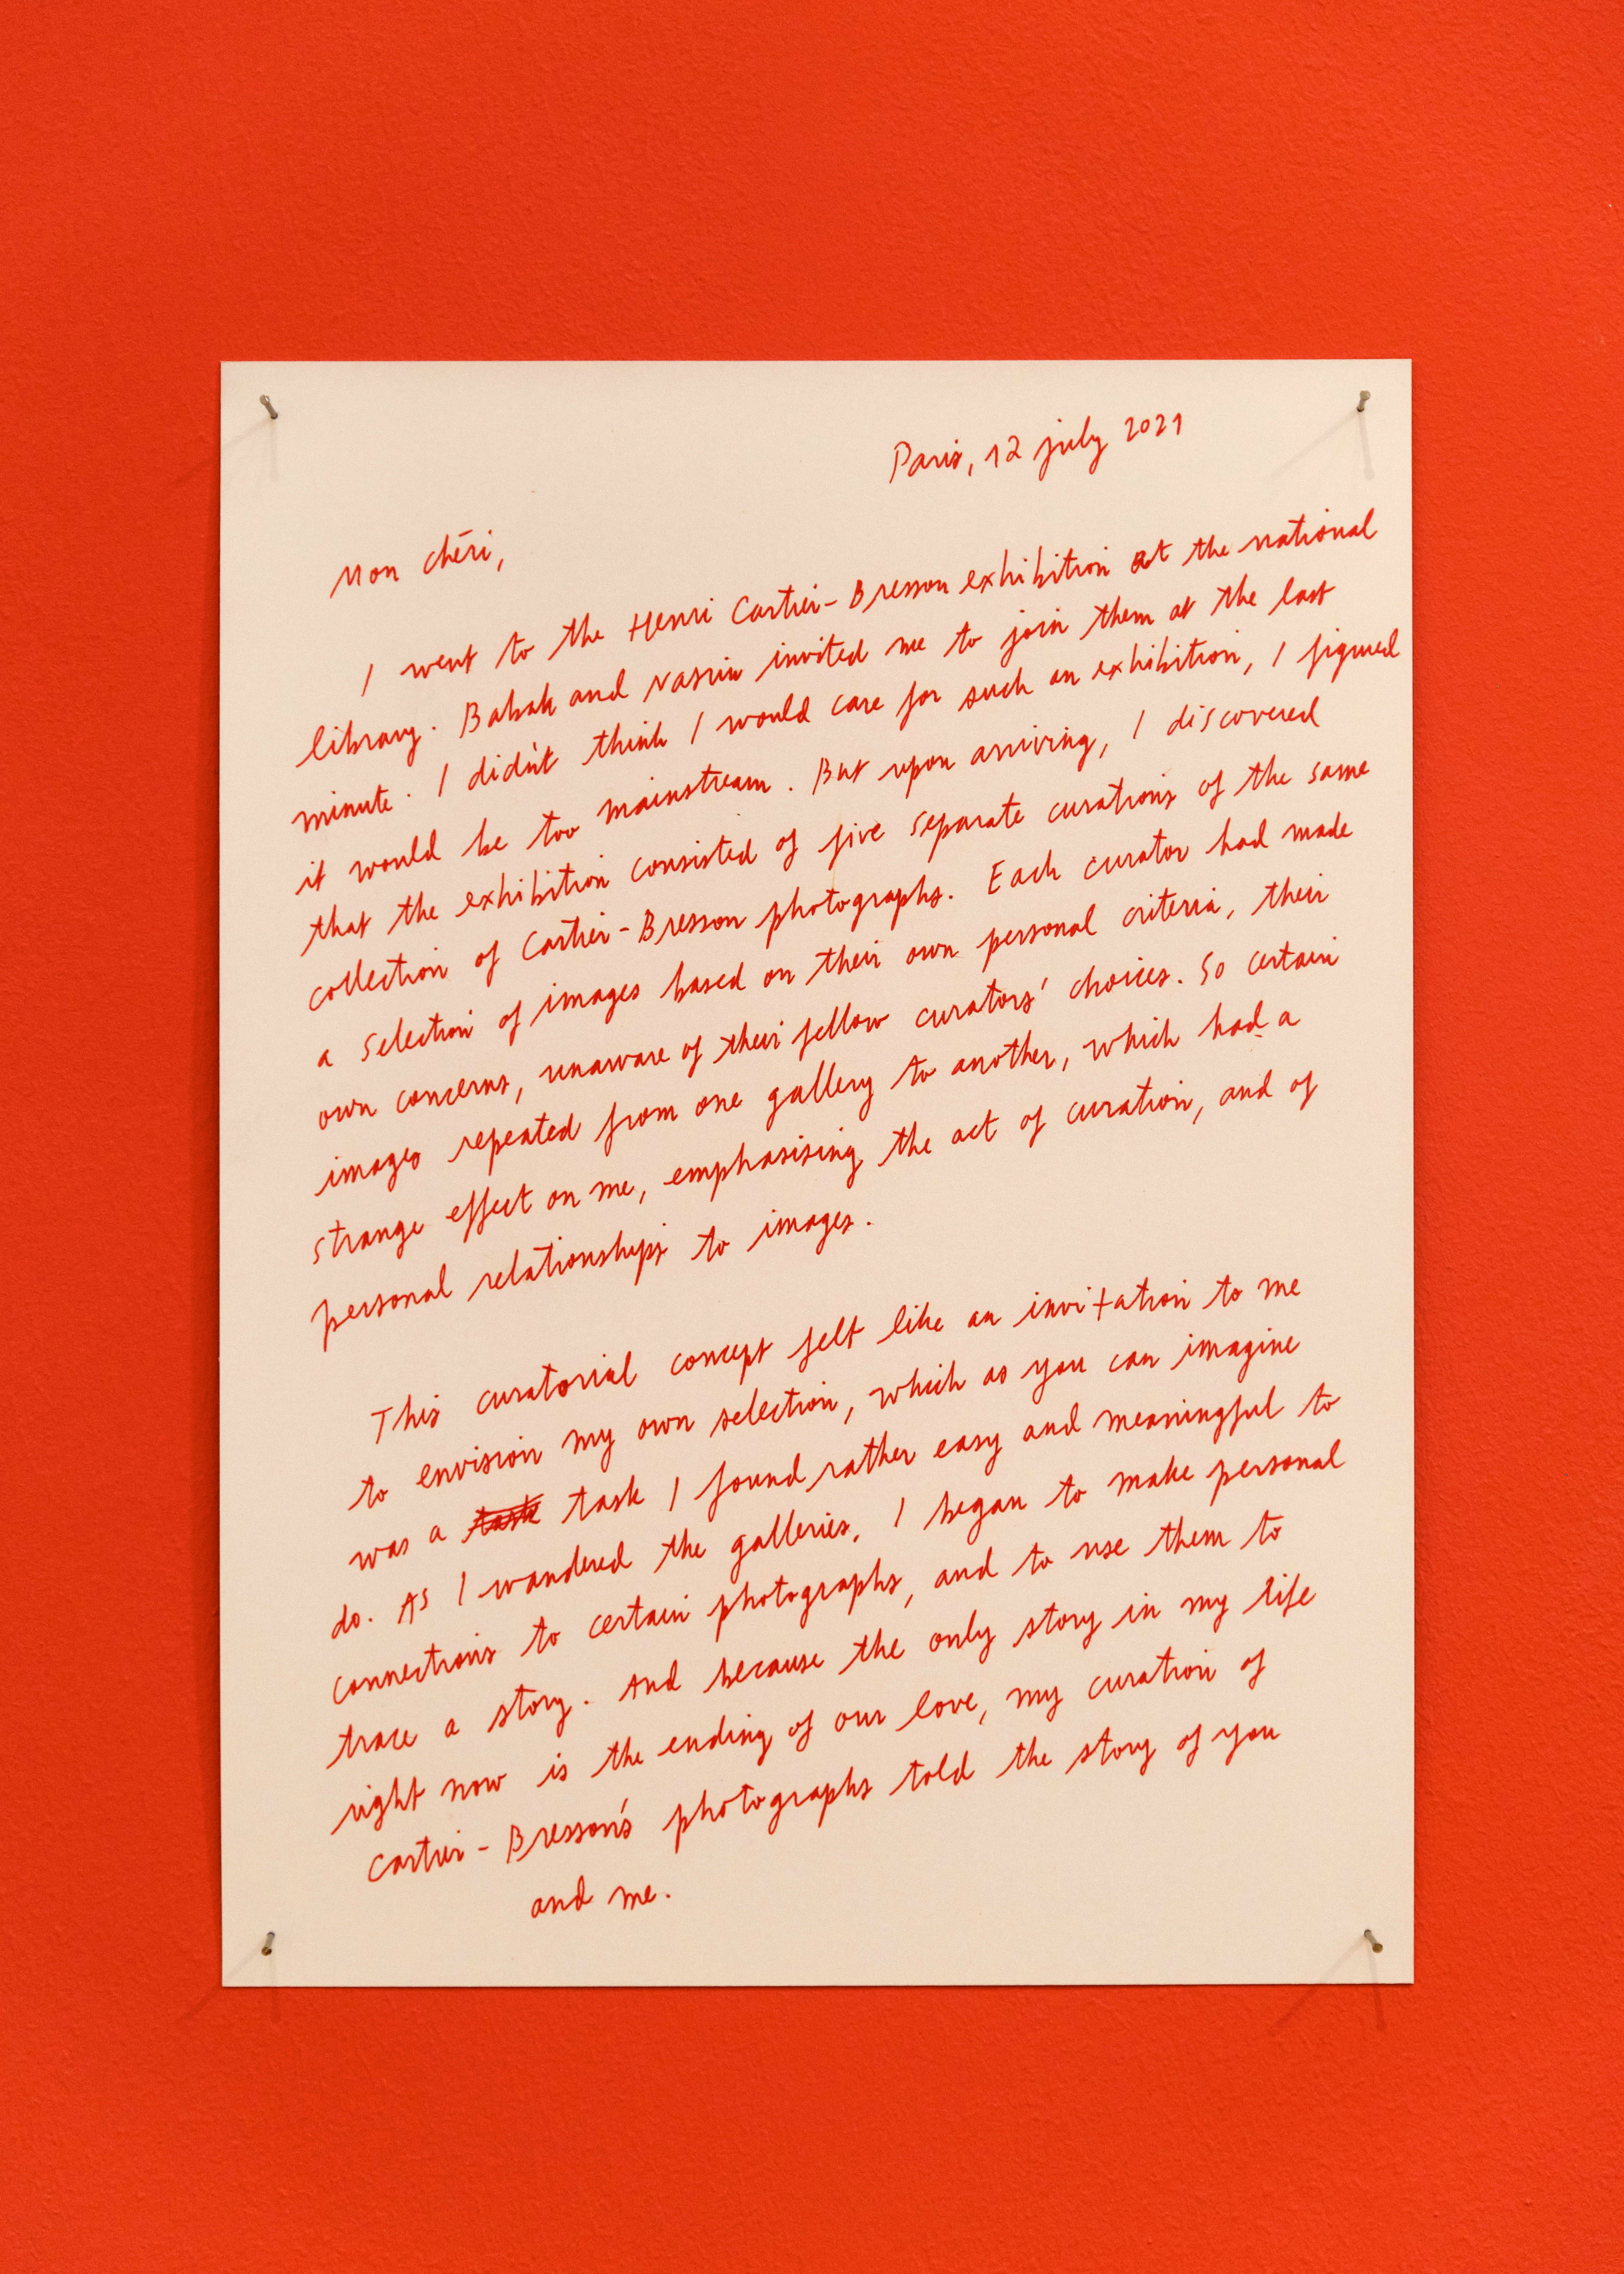 Paris, 12 july 2021
Mon chéri,
I went to the Henri Cartier-Bresson exhibition at the national
library. Babak and Nasrin invited me to join them at the last
minute. I didn't think I would care for such an exhibition, I figured
it would be too mainstream. But upon arriving, I discovered
that the exhibition consisted of five separate curations of the same
collection of Cartier-Bresson photographs. Each curator had made
a selection of images based on their own personal criteria, their
own concerns, unaware of their fellow curators' choices. So certain
images repeated from one gallery to another, which had a
strange effect on me, emphasising the act of curation, and of
personal relationships to images.
This curatorial concept felt like an invitation to me
to envision my own selection, which as you can imagine
was a task task I found rather easy and meaningful to
do. As I wandered the galleries, I began to make personal
connections to certain photographs, and to use them to
trace a story. And because the only story in my life
right now is the ending of our love, my curation of
Cartier-Bresson's photographs told the story of you
and me.